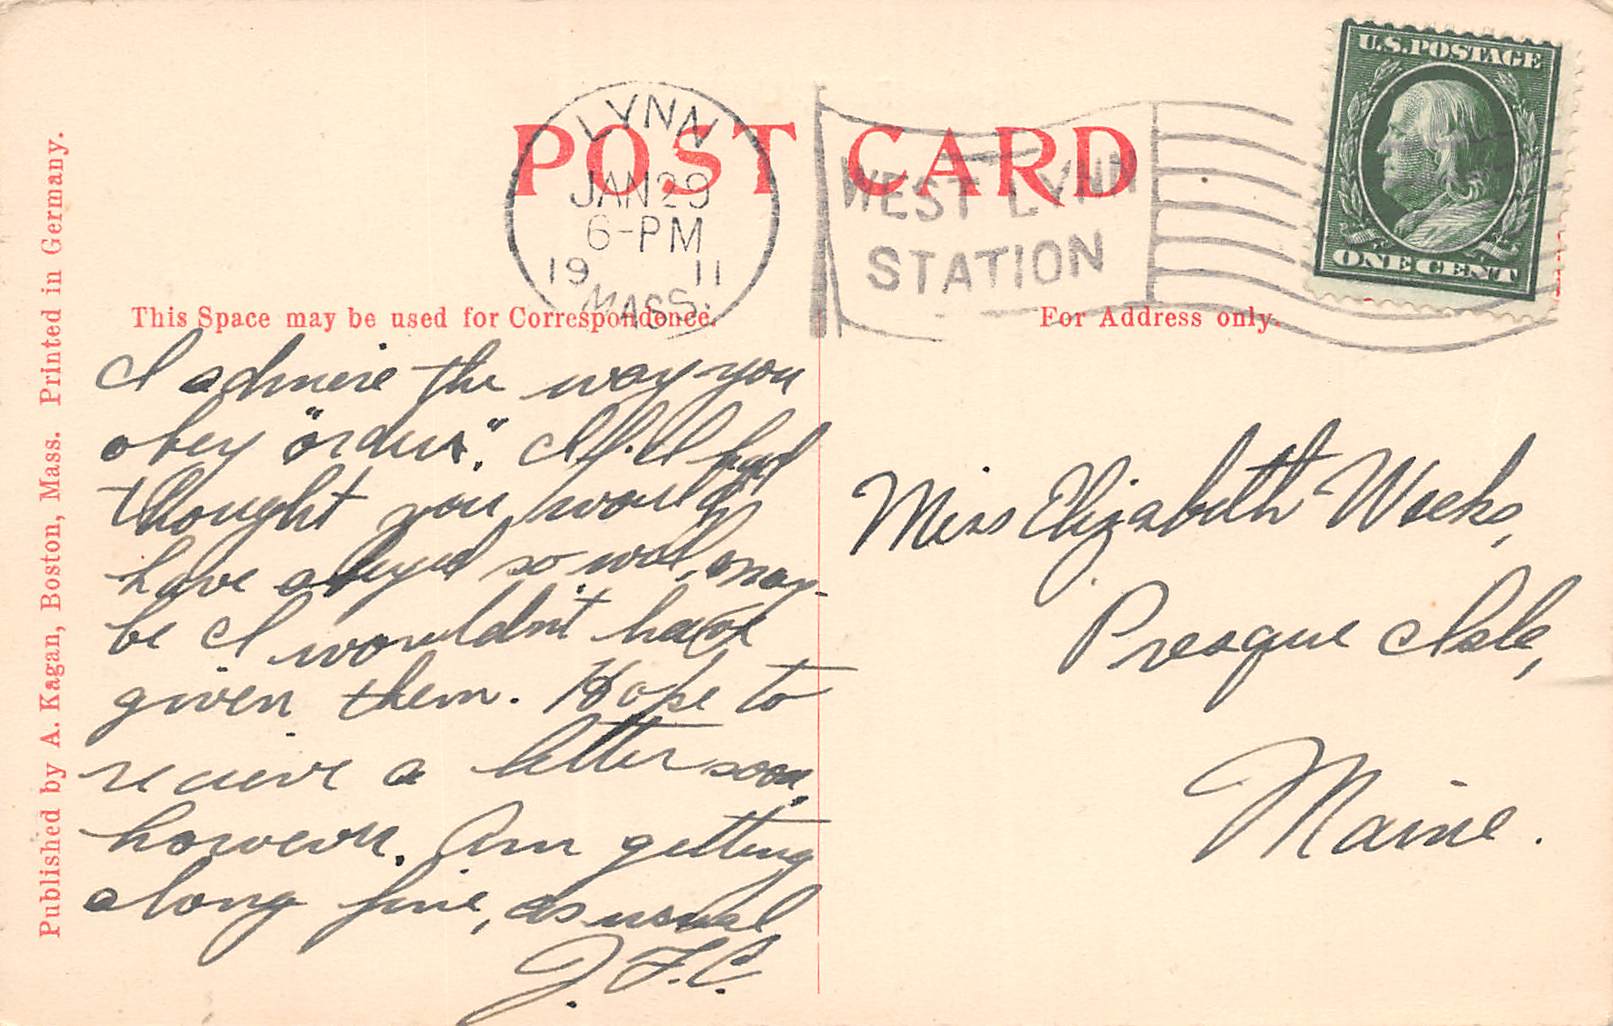 POST CARD
LYNN
JAN 29
6-PM
1911
MASS.
WEST LYNN
STATION
U.S. POSTAGE
ONE CENT
This Space may be used for Correspondence.
For Address only.
Published by A. Kagan, Boston, Mass. Printed in Germany.
I admire the way you
obey "orders". If I had
thought you would
have obeyed so well, may-
be I wouldn't have
given them. Hope to
recieve a letter soon,
however. Am getting
along fine, as usual
J.F.C.
Miss Elizabeth Weeks,
Presque Isle,
Maine.